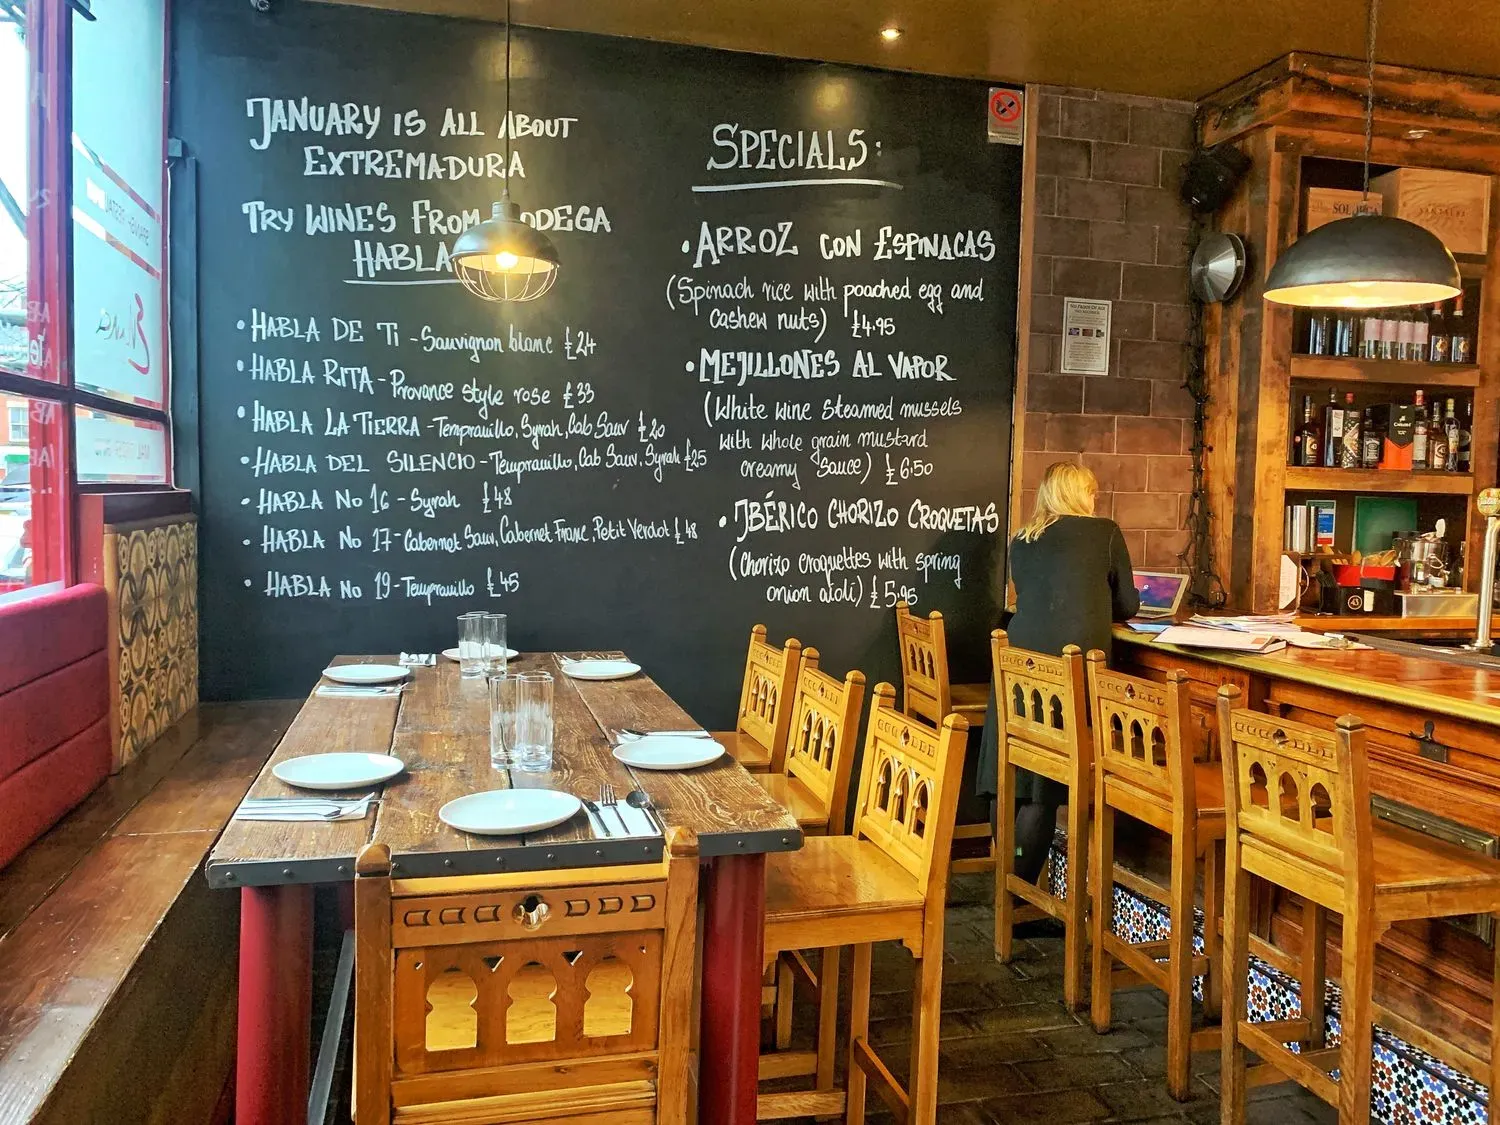 JANUARY IS ALL ABOUT
EXTREMADURA
TRY WINES FROM ODEGA
HABLA
• HABLA DE TI - Sauvignon blanc £24
• HABLA RITA - Provance style rose £33
• HABLA LA TIERRA - Tempranillo, Syrah, Cab Sauv £20
• HABLA DEL SILENCIO - Tempranillo, Cab Sauv, Syrah £25
• HABLA No 16 - Syrah £48
• HABLA No 17 - Cabernet Sauv, Cabernet Franc, Petit Verdot £48
• HABLA No 19 - Tempranillo £45
SPECIALS:
• ARROZ CON ESPINACAS
(Spinach rice with poached egg and
cashew nuts) £4.95
• MEJILLONES AL VAPOR
(White wine steamed mussels
with whole grain mustard
creamy sauce) £6.50
• IBÉRICO CHORIZO CROQUETAS
(Chorizo croquettes with spring
onion aioli) £5.95
43